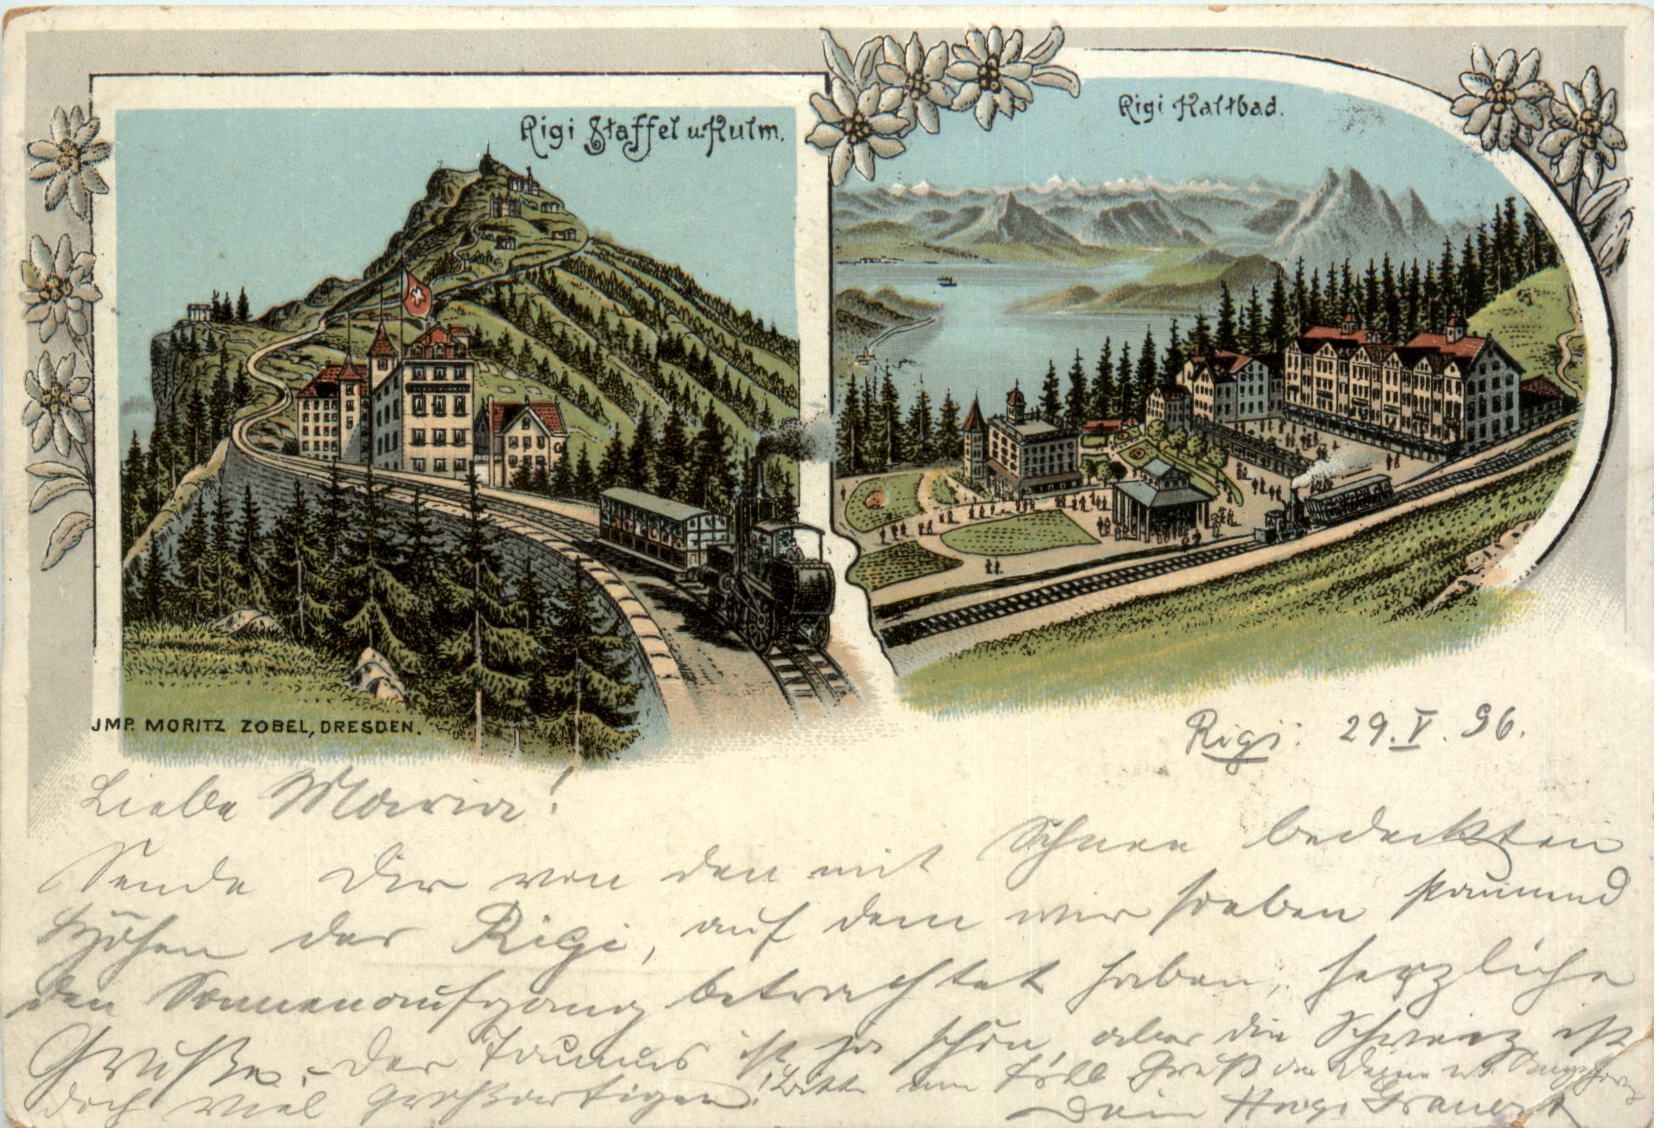 Rigi Staffel u. Kulm.
Rigi Kaltbad.
JMP. MORITZ ZOBEL, DRESDEN.
Rigi. 29.V.96.
Liebe Maria!
Sende Dir von den mit Schnee bedeckten
Höhen des Rigi, auf dem wir soeben staunend
den Sonnenaufgang betrachtet haben, herzliche
Grüße, der Taunus ist ja schön, aber die Schweiz ist
doch viel großartiger! Bitte um Gruß an Deine
Dein Hugo